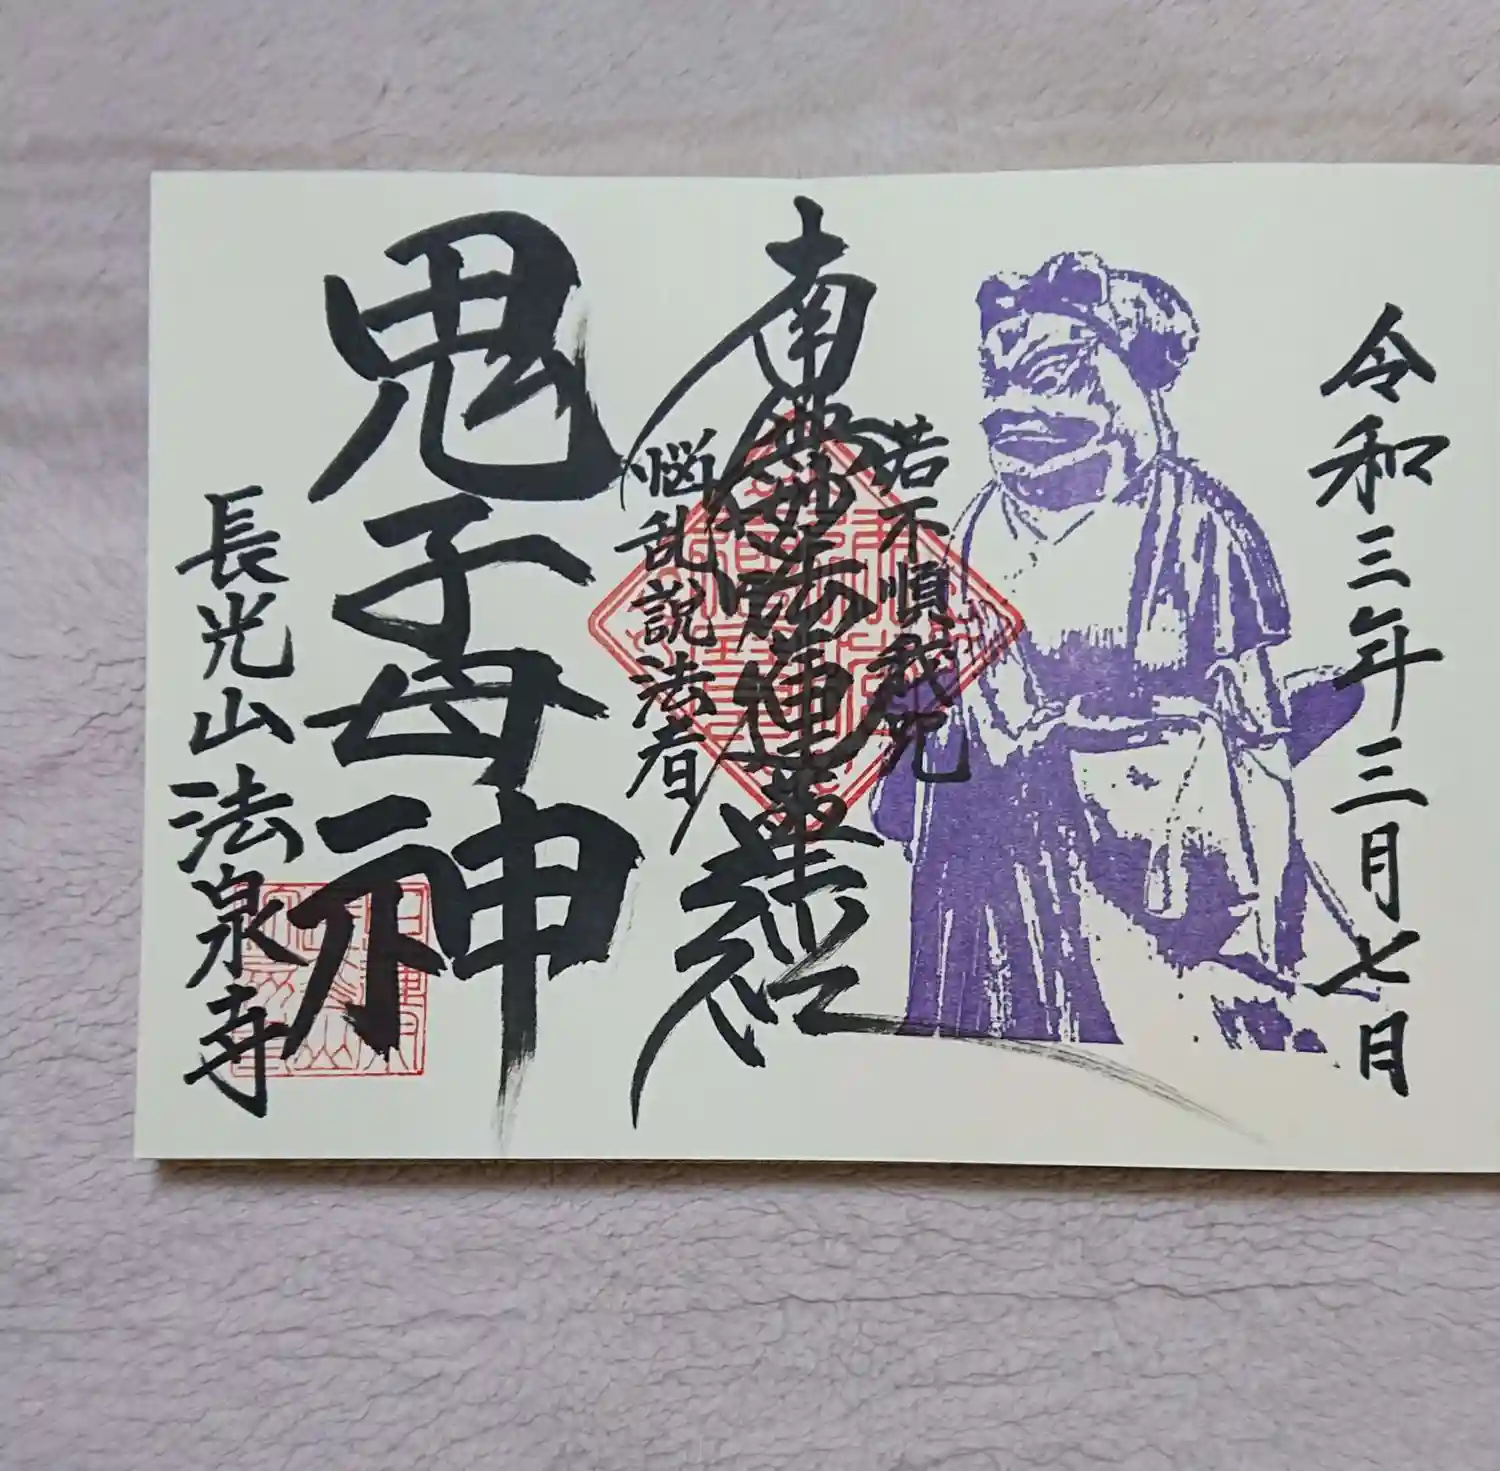 令和三年三月七日
若不順我咒
南無妙法蓮華経
悩乱説法者
鬼子母神
長光山法泉寺